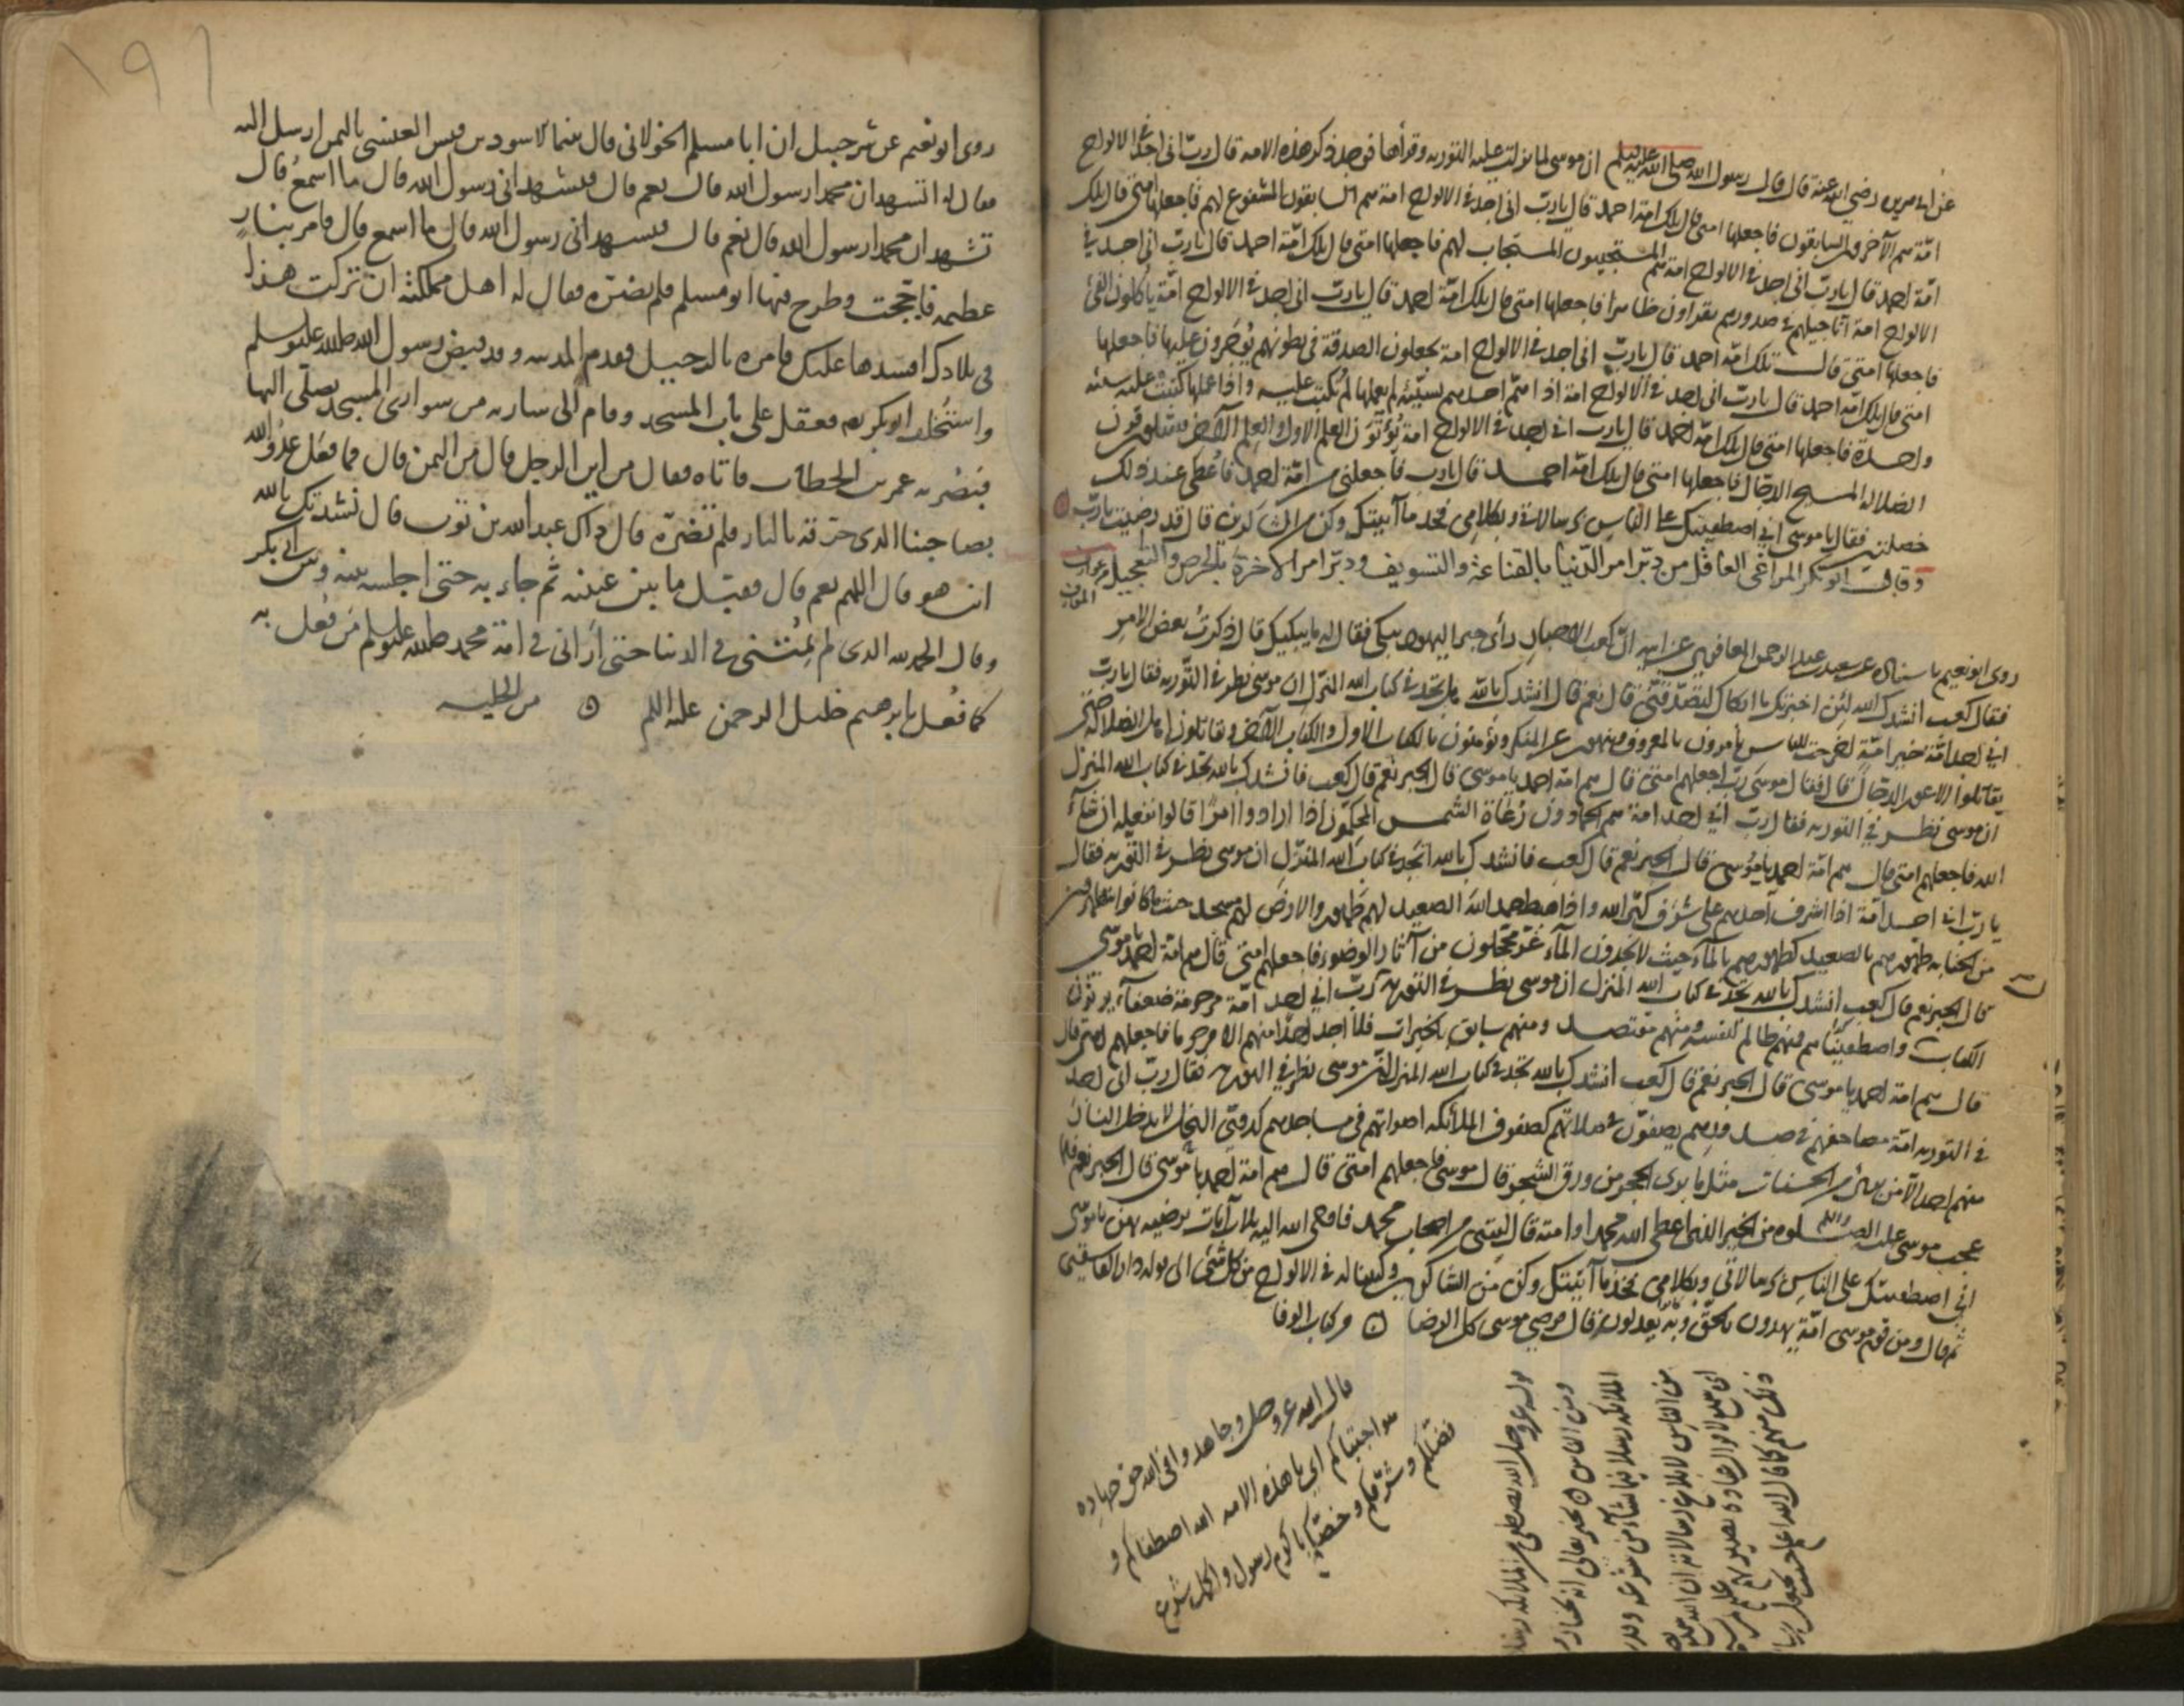 عن ابى هريرة رضى الله عنه قال قال رسول الله صلى الله عليه وسلم ان موسى لما نزلت عليه التورية وقرأها فوجد ذكر هذه الامة قال رب انى اجد فى الالواح
امة هم الآخرون السابقون فاجعلها امتى قال تلك امة احمد قال يارب انى اجد فى الالواح امة هم السابقون المشفوع لهم فاجعلها امتى قال تلك
امة احمد قال يارب انى اجد فى الالواح امة هم المستجيبون المستجاب لهم فاجعلها امتى قال تلك امة احمد قال يارب انى اجد فى
الالواح امة اناجيلهم فى صدورهم يقرأون ظاهرا فاجعلها امتى قال تلك امة احمد قال يارب انى اجد فى الالواح امة يأكلون الفئ
فاجعلها امتى قال تلك امة احمد قال يارب انى اجد فى الالواح امة يجعلون الصدقة فى بطونهم يؤجرون عليها فاجعلها
امتى قال تلك امة احمد قال يارب انى اجد فى الالواح امة اذا همّ احدهم بسيئة لم يعملها لم تكتب عليه واذا عملها كتبت عليه سيئة
واحدة فاجعلها امتى قال تلك امة احمد قال يارب انى اجد فى الالواح امة يؤتون العلم الاول والعلم الآخر فيقتلون قرن
الضلالة المسيح الدجال فاجعلها امتى قال تلك امة احمد قال يارب فاجعلنى من امة احمد فاعطى عند ذلك
خصلتين فقال يا موسى انى اصطفيتك على الناس برسالاتى وبكلامى فخذ ما آتيتك وكن من الشاكرين قال قد رضيت يارب
وقال ابو بكر المراغى العاقل من دبّر امر الدنيا بالقناعة والتسويف ودبّر امر الآخرة بالحرص والتعجيل من عوارف
المعارف
روى ابو نعيم باسناده عن سعيد عبد الرحمن المعافرى عن ابيه ان كعب الاحبار رأى حبر اليهود يبكى فقال له ما يبكيك قال ذكرت بعض الامر
فقال كعب انشدك الله لئن اخبرتك ما ابكاك لتصدقنى قال نعم قال انشدك بالله هل تجد فى كتاب الله المنزل ان موسى نظر فى التورية فقال يارب
انى اجد امة خير امة اخرجت للناس يأمرون بالمعروف وينهون عن المنكر ويؤمنون بالكتاب الاول والكتاب الآخر ويقاتلون اهل الضلالة حتى
يقاتلوا الاعور الدجال قال فقال موسى رب اجعلهم امتى قال هم امة احمد يا موسى قال الحبر نعم قال كعب فانشدك بالله تجد فى كتاب الله المنزل
ان موسى نظر فى التورية فقال رب انى اجد امة هم الحمادون رعاة الشمس المحكمون اذا ارادوا امرا قالوا نفعله ان شاء
الله فاجعلهم امتى قال هم امة احمد يا موسى قال الحبر نعم قال كعب فانشدك بالله اتجد فى كتاب الله المنزل ان موسى نظر فى التورية فقال
يا رب انى اجد امة اذا اشرف احدهم على شرف كبّر الله واذا هبط حمد الله الصعيد لهم طهور والارض لهم مسجد حيث ما كانوا يتطهرون
من الجنابة طهورهم بالصعيد كطهورهم بالماء حيث لا يجدون الماء غر محجلون من آثار الوضوء فاجعلهم امتى قال هم امة احمد يا موسى
قال الحبر نعم قال كعب انشدك بالله تجد فى كتاب الله المنزل ان موسى نظر فى التورية رب انى اجد امة مرحومة ضعفاء يرثون
الكتاب واصطفيتهم فمنهم ظالم لنفسه ومنهم مقتصد ومنهم سابق بالخيرات فلا اجد احدا منهم الا مرحوما فاجعلهم امتى قال
قال هم امة احمد يا موسى قال الحبر نعم قال كعب انشدك بالله تجد فى كتاب الله المنزل ان موسى نظر فى التورية فقال رب انى اجد
فى التورية امة مصاحفهم فى صدورهم يصفون فى صلاتهم كصفوف الملائكة اصواتهم فى مساجدهم كدوى النحل لا يدخل النار
منهم احد الا من برئ من الحسنات مثل ما برئ الحجر من ورق الشجر قال موسى فاجعلهم امتى قال هم امة احمد يا موسى قال الحبر نعم فلما
عجب موسى عليه الصلوة والسلم من الخير الذى اعطى الله محمدا وامته قال ليتنى من اصحاب محمد فاوحى الله اليه بثلاث آيات يرضيه بهن يا موسى
انى اصطفيتك على الناس برسالاتى وبكلامى فخذ ما آتيتك وكن من الشاكرين وكتبنا له فى الالواح من كل شئ الى قوله دار الفاسقين
ثم قال ومن قوم موسى امة يهدون بالحق وبه يعدلون قال فرضى موسى كل الرضا من كتاب الوفا
قال الله عز وجل وجاهدوا فى الله حق جهاده
هو اجتباكم اى يا هذه الامة الله اصطفاكم و
فضلكم وشرفكم وخصكم باكرم رسول واكمل شرع
قوله عز وجل الله يصطفى من الملائكة رسلا
ومن الناس يخبر تعالى انه يختار من
الملائكة رسلا فيما يشاء من شرعه وقدره
من الناس لابلاغ رسالاته ان الله سميع
ذلك منهم كما قال الله اعلم حيث يجعل رسالته
١٩٦
روى ابو نعيم عن شرحبيل ان ابا مسلم الخولانى قال بينما الاسود بن قيس العنسى باليمن ارسل اليه
فقال له اتشهد ان محمدا رسول الله قال نعم قال فتشهد انى رسول الله قال ما اسمع قال
تشهد ان محمدا رسول الله قال نعم قال فتشهد انى رسول الله قال ما اسمع قال فامر بنار
عظيمة فاججت وطرح فيها ابو مسلم فلم يضره فقال له اهل مملكته ان تركت هذا
فى بلادك افسدها عليك فامره بالرحيل فقدم المدينة وقد قبض رسول الله صلى الله عليه وسلم
واستخلف ابو بكر فعقل على باب المسجد وقام الى سارية من سوارى المسجد يصلى اليها
فبصر به عمر بن الخطاب فاتاه فقال من اين الرجل قال من اليمن قال فما فعل عدو الله
بصاحبنا الذى حرقه بالنار فلم تضره قال ذاك عبد الله بن ثوب قال نشدتك بالله
انت هو قال اللهم نعم قال فقبل ما بين عينيه ثم جاء به حتى اجلسه بينه وبين ابى بكر
وقال الحمد لله الذى لم يمتنى فى الدنيا حتى ارانى فى امة محمد صلى الله عليه وسلم من فعل به
كما فعل بابرهيم خليل الرحمن عليه السلم من الحلية